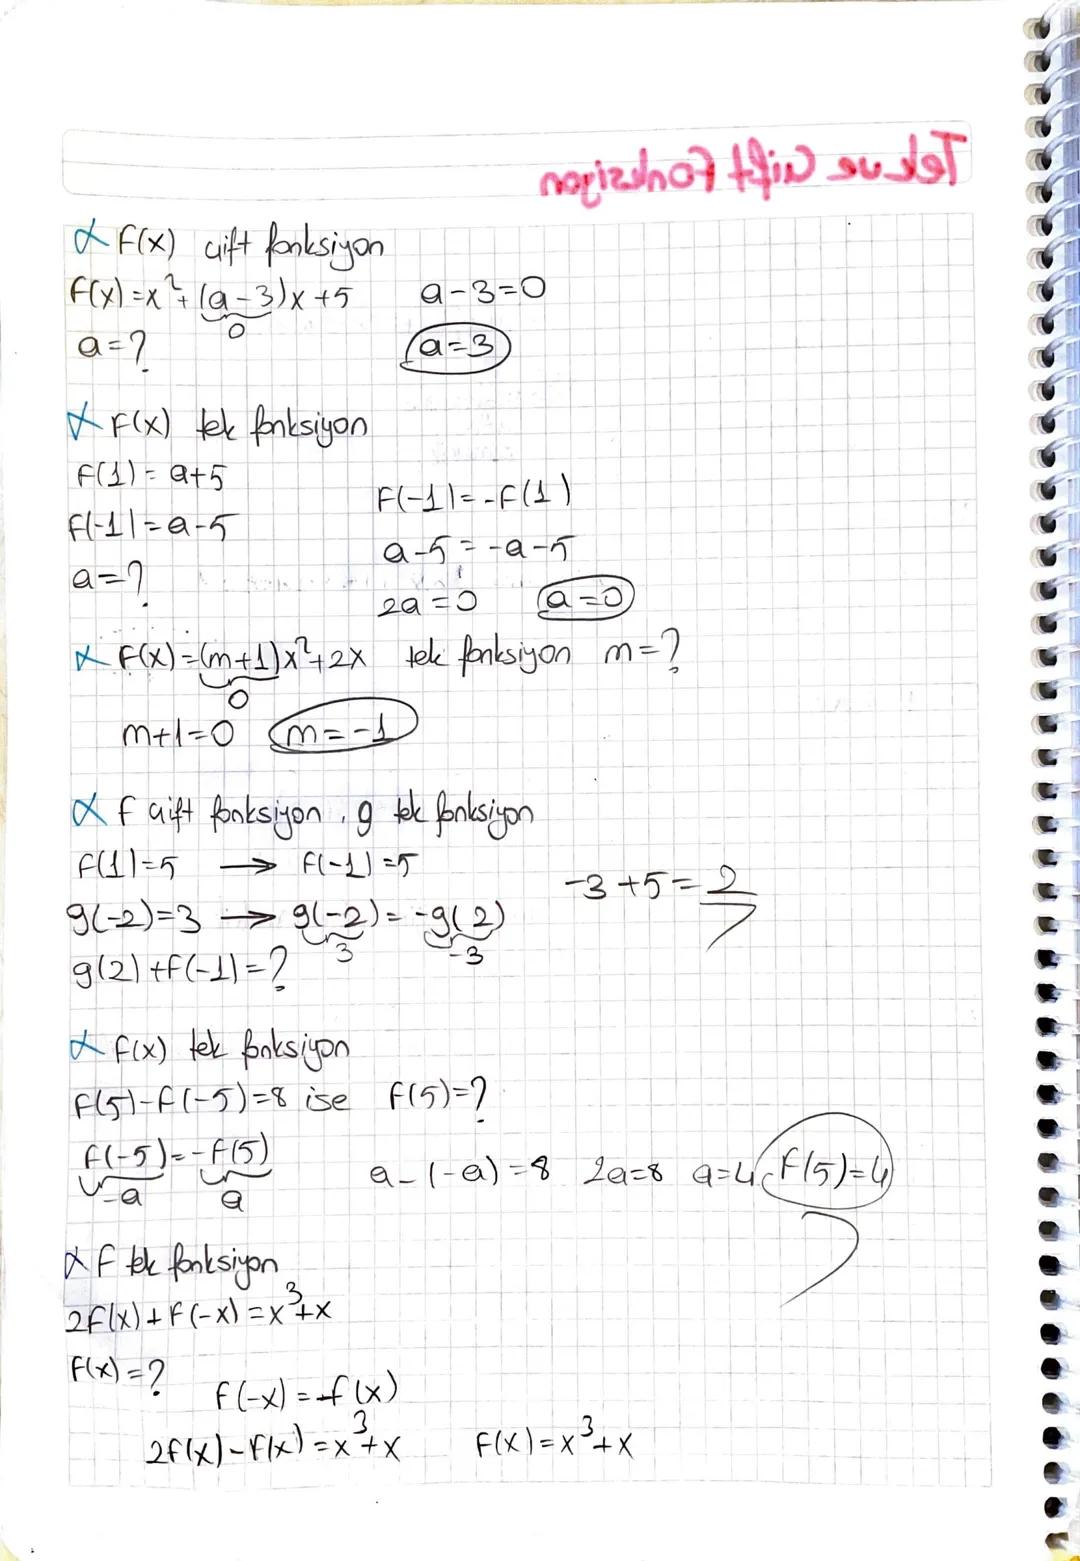 Tek ve Çift Fonksiyon
α F(x) çift fonksiyon
F(x)=x²+(a-3)x+5    a-3=0
0
a=?    a=3
α F(x) tek fonksiyon
F(1)=a+5
F(-1)=-F(1)
F(-1)=a-5
a-5=-a-5
a=?
2a=0    a=0
α F(x)=(m+1)x²+2x    tek fonksiyon    m=?
0
m+1=0    m=-1
α f çift fonksiyon, g tek fonksiyon
F(1)=5 → F(-1)=5
-3+5=2
g(-2)=3 → g(-2)=-g(2)
3    -3
g(2)+F(-1)=?
α f(x) tek fonksiyon
F(5)-F(-5)=8 ise F(5)=?
F(-5)=-F(5)    a-(-a)=8    2a=8    a=4    F(5)=4
-a    a
α F tek fonksiyon
2F(x)+F(-x)=x³+x
F(x)=?
F(-x)=-f(x)
2F(x)-F(x)=x³+x    F(x)=x³+x